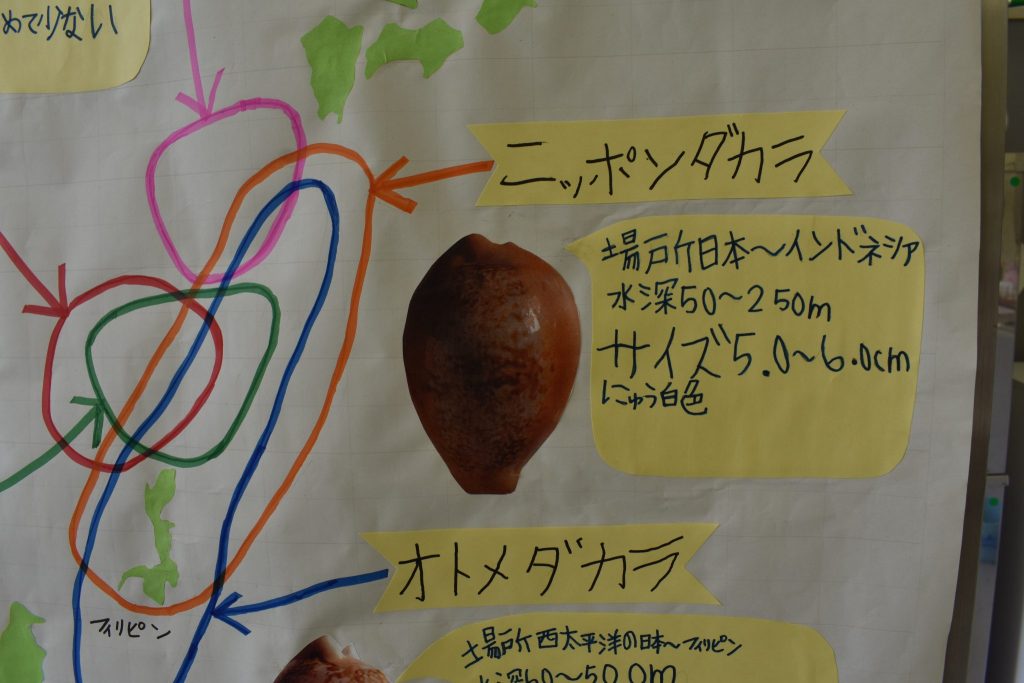 めて少ない
ニッポンダカラ
場所日本〜インドネシア
水深50〜250m
サイズ5.0〜6.0cm
にゅう白色
オトメダカラ
フィリピン
場所西太平洋の日本〜フィリピン
水深50〜500m